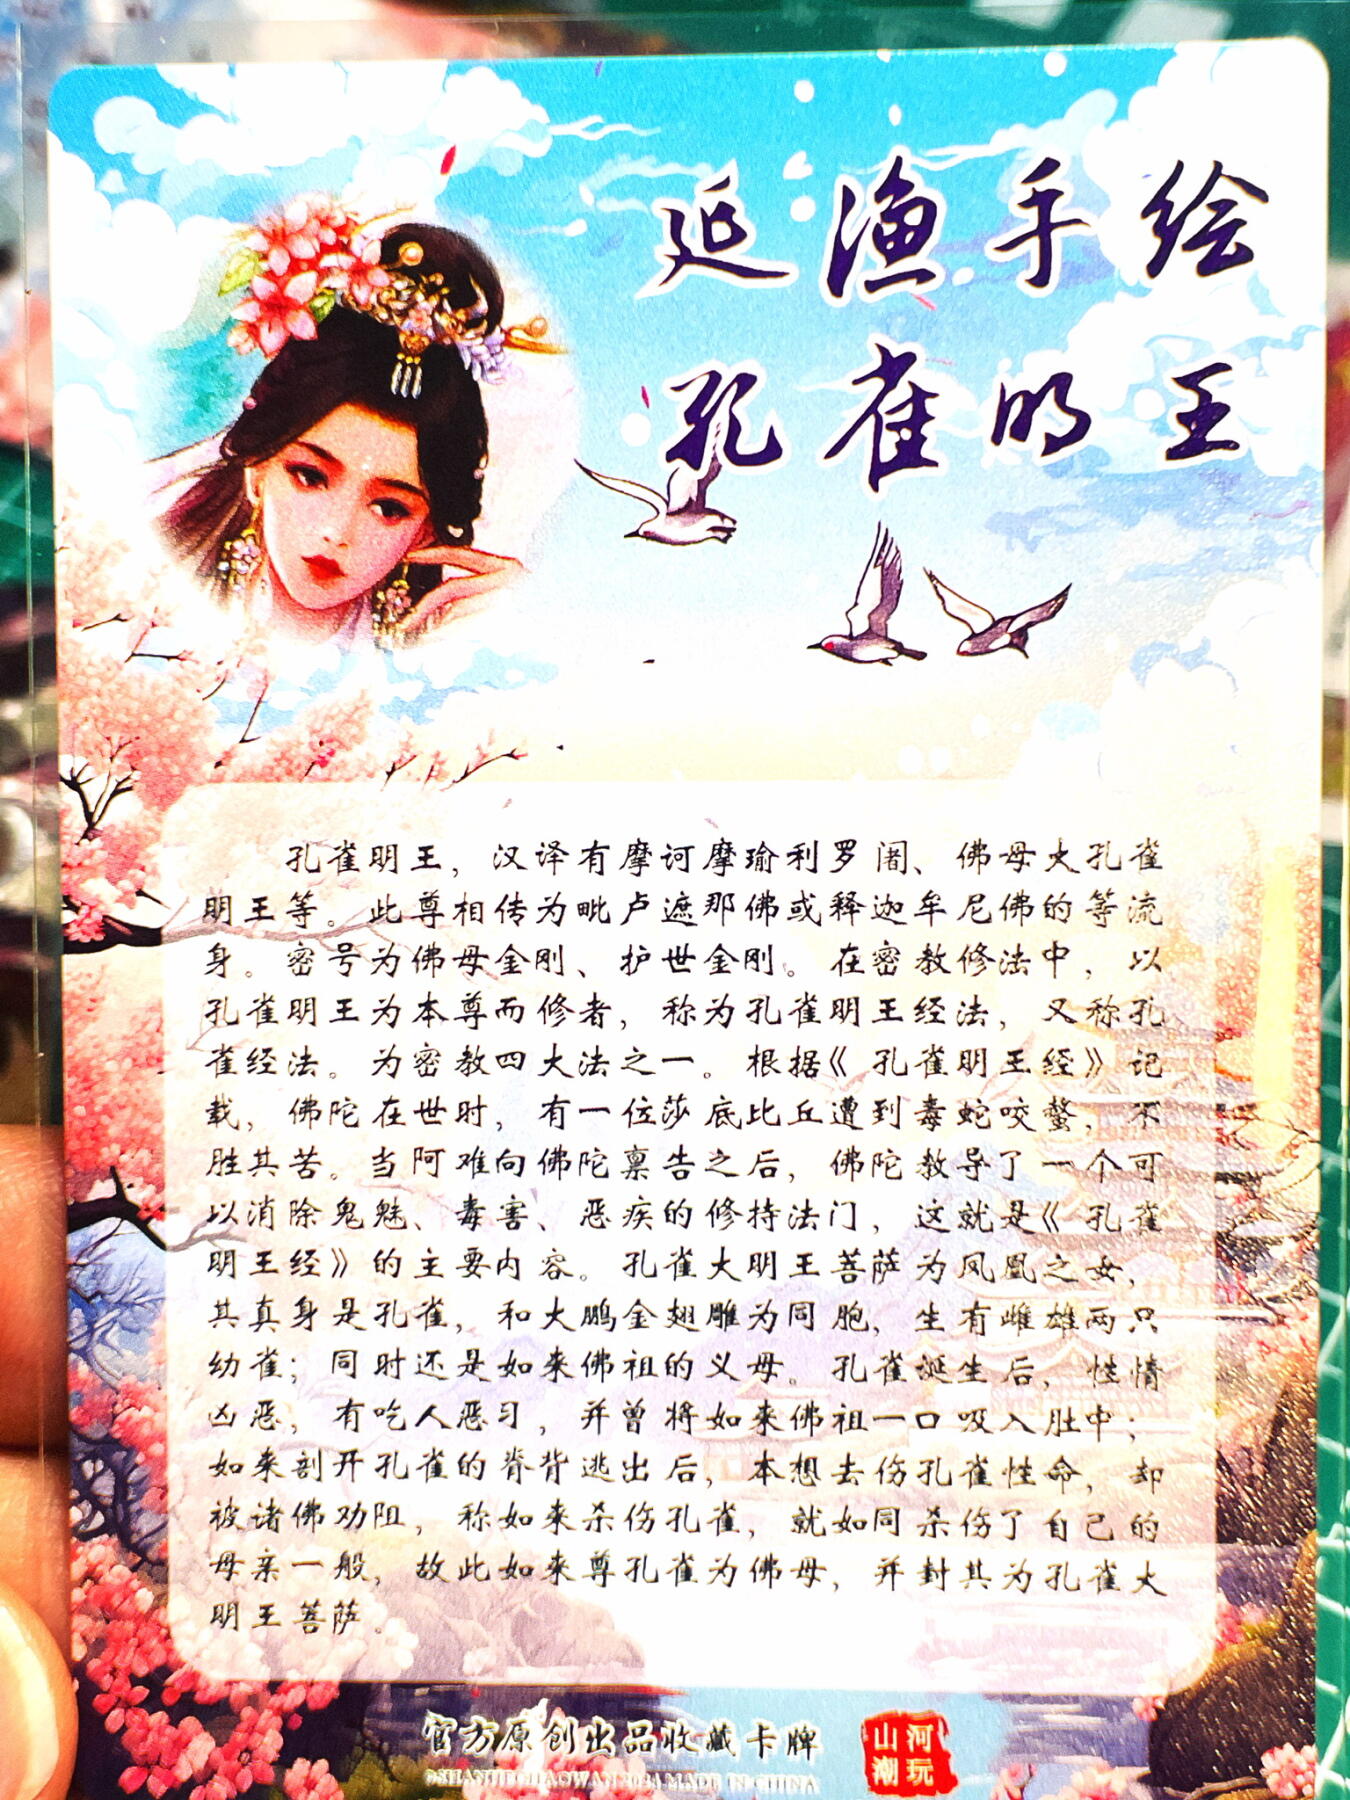 延渔手绘
孔雀明王
孔雀明王，汉译有摩诃摩瑜利罗阇、佛母大孔雀
明王等。此尊相传为毗卢遮那佛或释迦牟尼佛的等流
身。密号为佛母金刚、护世金刚。在密教修法中，以
孔雀明王为本尊而修者，称为孔雀明王经法，又称孔
雀经法。为密教四大法之一。根据《孔雀明王经》记
载，佛陀在世时，有一位莎底比丘遭到毒蛇咬螫，不
胜其苦。当阿难向佛陀禀告之后，佛陀教导了一个可
以消除鬼魅、毒害、恶疾的修持法门，这就是《孔雀
明王经》的主要内容。孔雀大明王菩萨为凤凰之女，
其真身是孔雀，和大鹏金翅雕为同胞，生有雌雄两只
幼雀；同时还是如来佛祖的义母。孔雀诞生后，性情
凶恶，有吃人恶习，并曾将如来佛祖一口吸入肚中；
如来剖开孔雀的脊背逃出后，本想去伤孔雀性命，却
被诸佛劝阻，称如来杀伤孔雀，就如同杀伤了自己的
母亲一般，故此如来尊孔雀为佛母，并封其为孔雀大
明王菩萨。
官方原创出品收藏卡牌
©SHANHECHAOWAN 2024 MADE IN CHINA
山河
潮玩